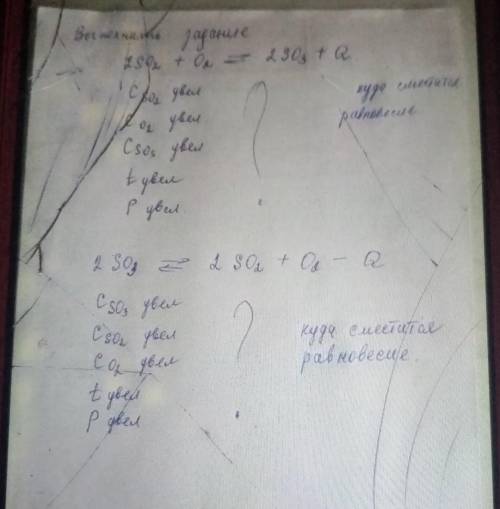 Выполнить задание
2SO₂ + O₂ ⇌ 2SO₃ + Q
C SO₂ увел
C O₂ увел
C SO₃ увел
t увел
P увел.
?
куда сместится
равновесие
2 SO₃ ⇌ 2 SO₂ + O₂ - Q
C SO₃ увел
C SO₂ увел
C O₂ увел
t увел
P увел
?
куда сместится
равновесие.